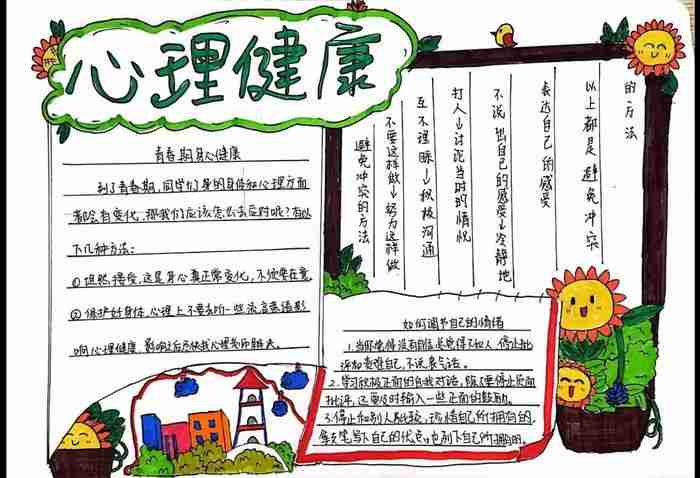 心理健康
青春期身心健康
到了青春期,同学们身的身体和心理方面
都会有变化,那我们应该怎么去应对呢?有以
下几种方法:
①坦然接受,这是身心真正常变化,不须要在意
②保护好身体,心理上不要去听一些流言蜚语影
响心理健康,影响之后尽快找心理老师聊天。
避免冲突的方法
不要这样做→努力这样做
互不理睬→积极沟通
打人→讨论当时的情况
不说出自己的感受→冷静地
表达自己的感受
以上都是避免冲突
的方法
如何调节自己的情绪
1.当你觉得没有自信或觉得不如人,停止批
评和责难自己,不说丧气话。
2.学习积极正面的自我对话,除了要停止负面
批评,还要及时输入一些正面的鼓励。
3.停止和别人比较,珍惜自己所拥有的,
拿支笔写下自己的优点,也列下自己所拥的。